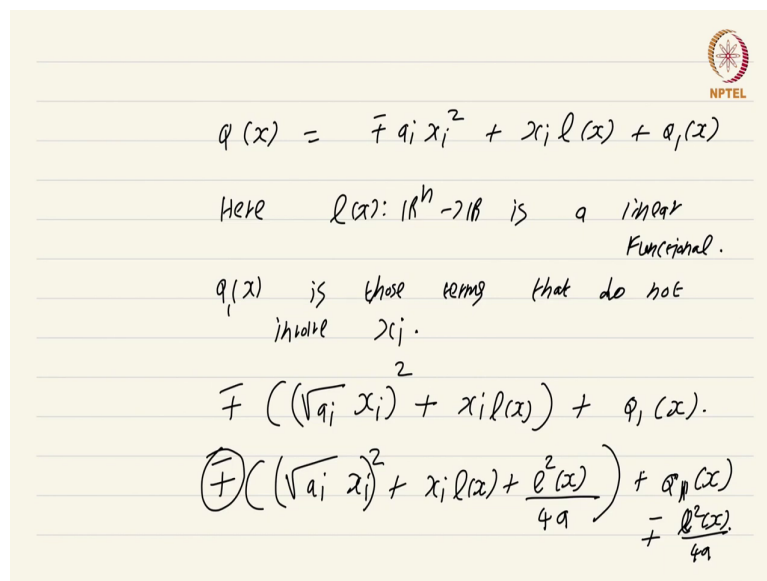 NPTEL
Q(x) = ∓ aᵢ xᵢ² + xᵢ l(x) + Q₁(x)
Here l(x): ℝⁿ → ℝ is a linear
Funcional.
Q₁(x) is those terms that do not
involve xᵢ.
∓ ((√aᵢ xᵢ)² + xᵢ l(x)) + Q₁(x).
∓ ((√aᵢ xᵢ)² + xᵢ l(x) + l²(x)/4a) + Q₁(x)
∓ l²(x)/4a.